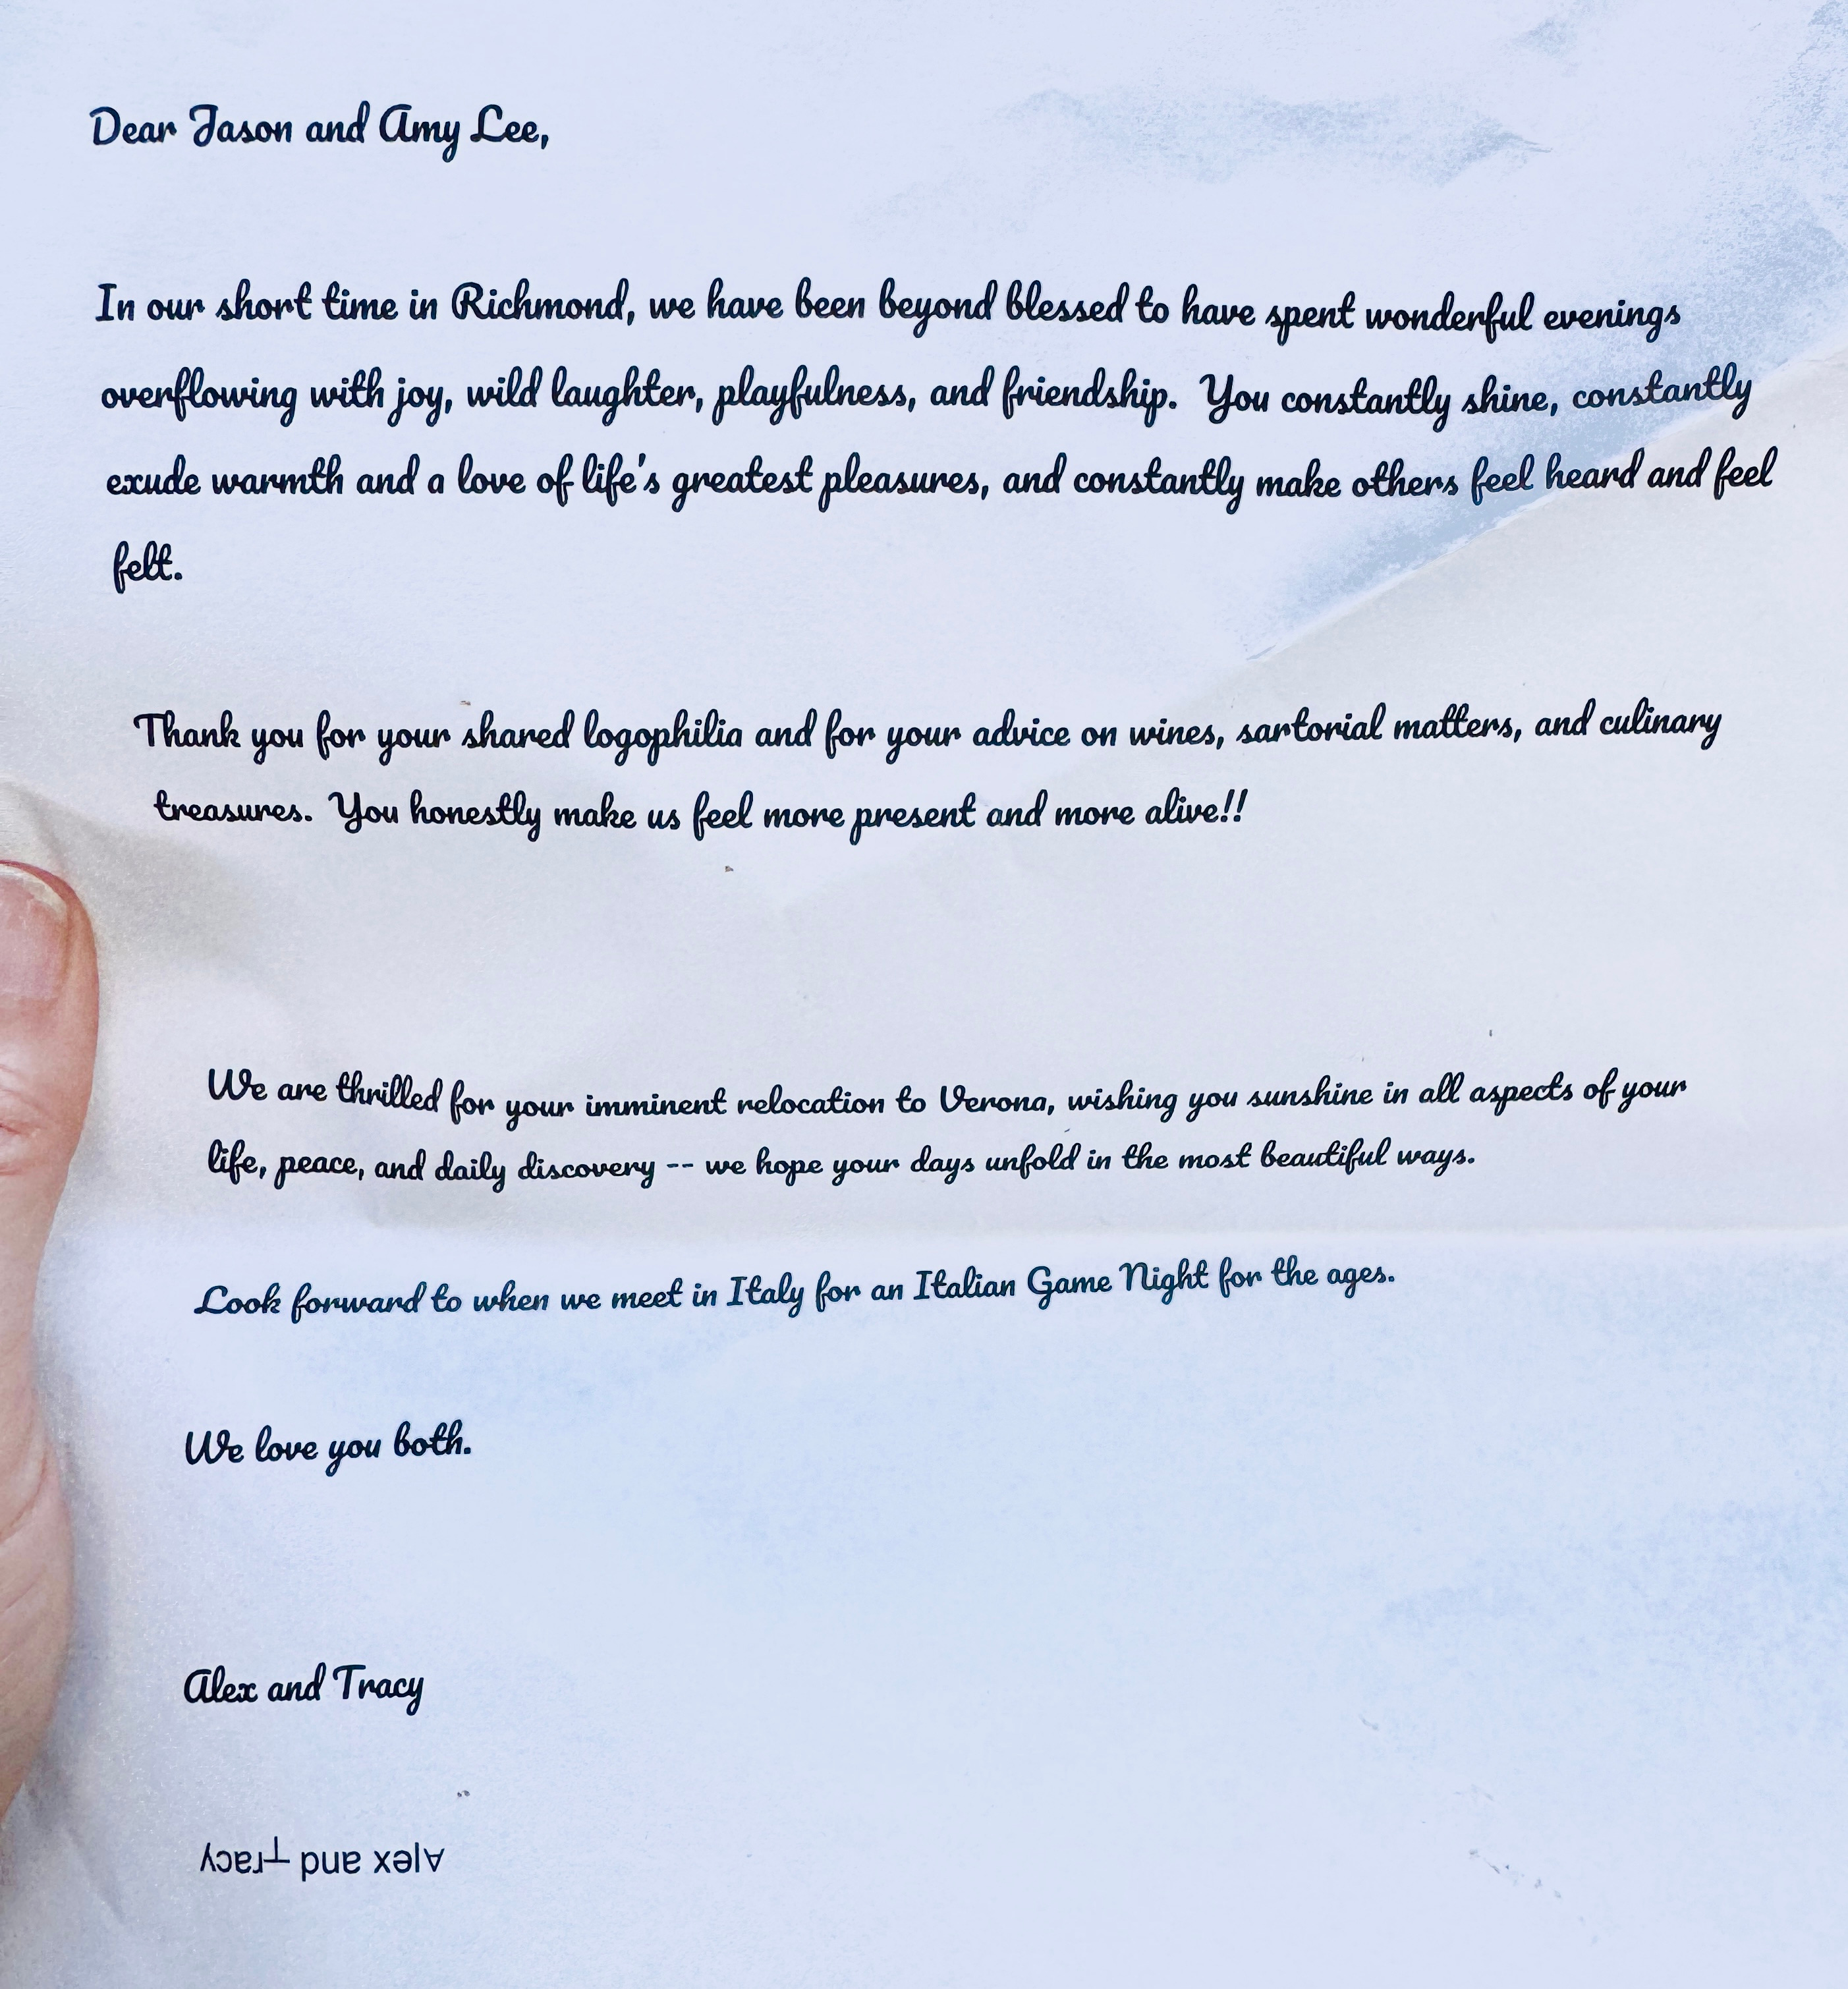 Dear Jason and Amy Lee,
In our short time in Richmond, we have been beyond blessed to have spent wonderful evenings
overflowing with joy, wild laughter, playfulness, and friendship. You constantly shine, constantly
exude warmth and a love of life's greatest pleasures, and constantly make others feel heard and feel
felt.
Thank you for your shared logophilia and for your advice on wines, sartorial matters, and culinary
treasures. You honestly make us feel more present and more alive!!
We are thrilled for your imminent relocation to Verona, wishing you sunshine in all aspects of your
life, peace, and daily discovery -- we hope your days unfold in the most beautiful ways.
Look forward to when we meet in Italy for an Italian Game Night for the ages.
We love you both.
Alex and Tracy
Alex and Tracy